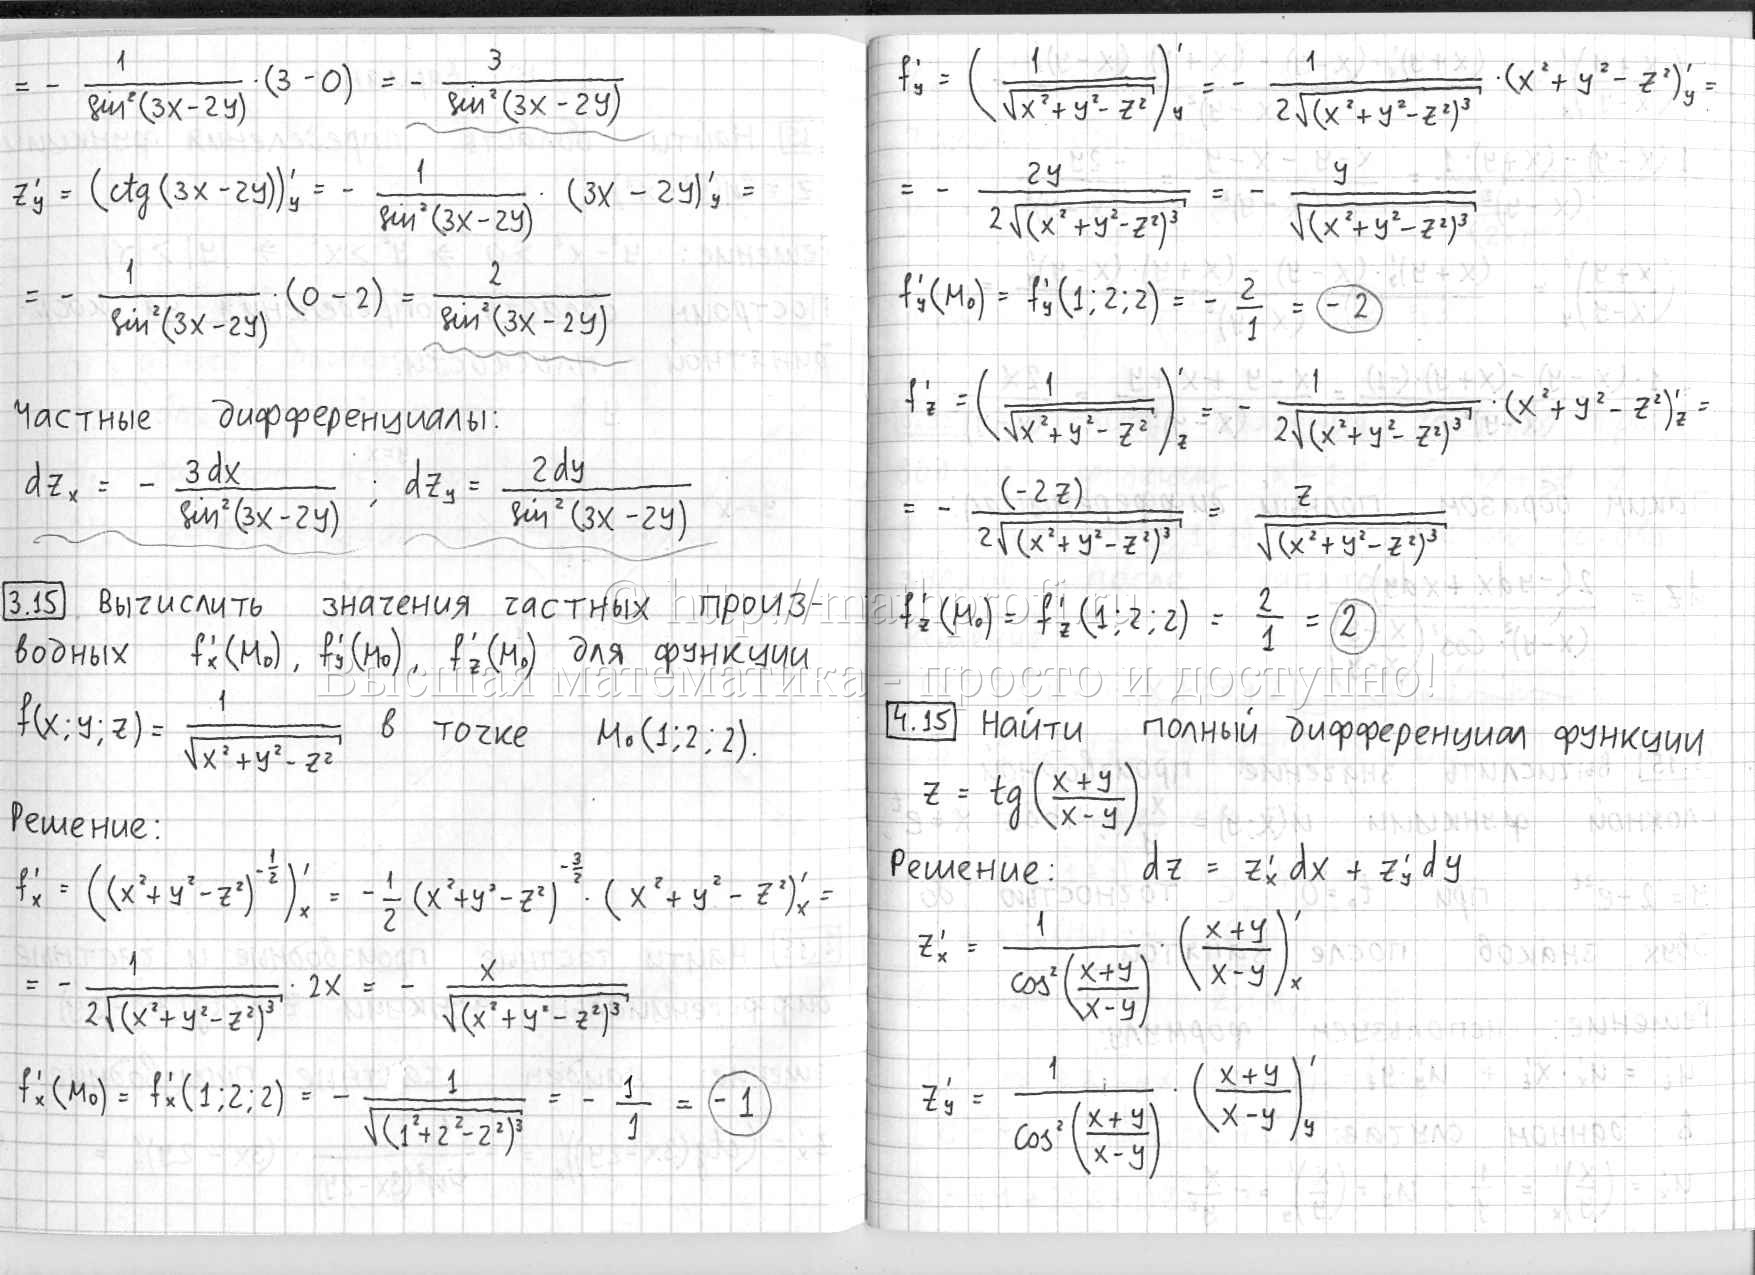 = - 1/sin²(3x-2y) · (3-0) = - 3/sin²(3x-2y)
z'y = (ctg(3x-2y))'y = - 1/sin²(3x-2y) · (3x-2y)'y =
= - 1/sin²(3x-2y) · (0-2) = 2/sin²(3x-2y)
Частные дифференциалы:
dzx = - 3dx/sin²(3x-2y) ; dzy = 2dy/sin²(3x-2y)
3.15 Вычислить значения частных произ-
водных f'x(M₀), f'y(M₀), f'z(M₀) для функции
f(x;y;z) = 1/√(x²+y²-z²) в точке M₀(1;2;2).
Решение:
f'x = ((x²+y²-z²)^(-1/2))'x = -1/2 (x²+y²-z²)^(-3/2) · (x²+y²-z²)'x =
= - 1/(2√((x²+y²-z²)³)) · 2x = - x/√((x²+y²-z²)³)
f'x(M₀) = f'x(1;2;2) = - 1/√((1²+2²-2²)³) = - 1/1 = -1
f'y = (1/√(x²+y²-z²))'y = - 1/(2√((x²+y²-z²)³)) · (x²+y²-z²)'y =
= - 2y/(2√((x²+y²-z²)³)) = - y/√((x²+y²-z²)³)
f'y(M₀) = f'y(1;2;2) = - 2/1 = -2
f'z = (1/√(x²+y²-z²))'z = - 1/(2√((x²+y²-z²)³)) · (x²+y²-z²)'z =
= - (-2z)/(2√((x²+y²-z²)³)) = z/√((x²+y²-z²)³)
f'z(M₀) = f'z(1;2;2) = 2/1 = 2
4.15 Найти полный дифференциал функции
z = tg((x+y)/(x-y))
Решение: dz = z'x dx + z'y dy
z'x = 1/cos²((x+y)/(x-y)) · ((x+y)/(x-y))'x
z'y = 1/cos²((x+y)/(x-y)) · ((x+y)/(x-y))'y
© http://mathprofi.ru
Высшая математика - просто и доступно!